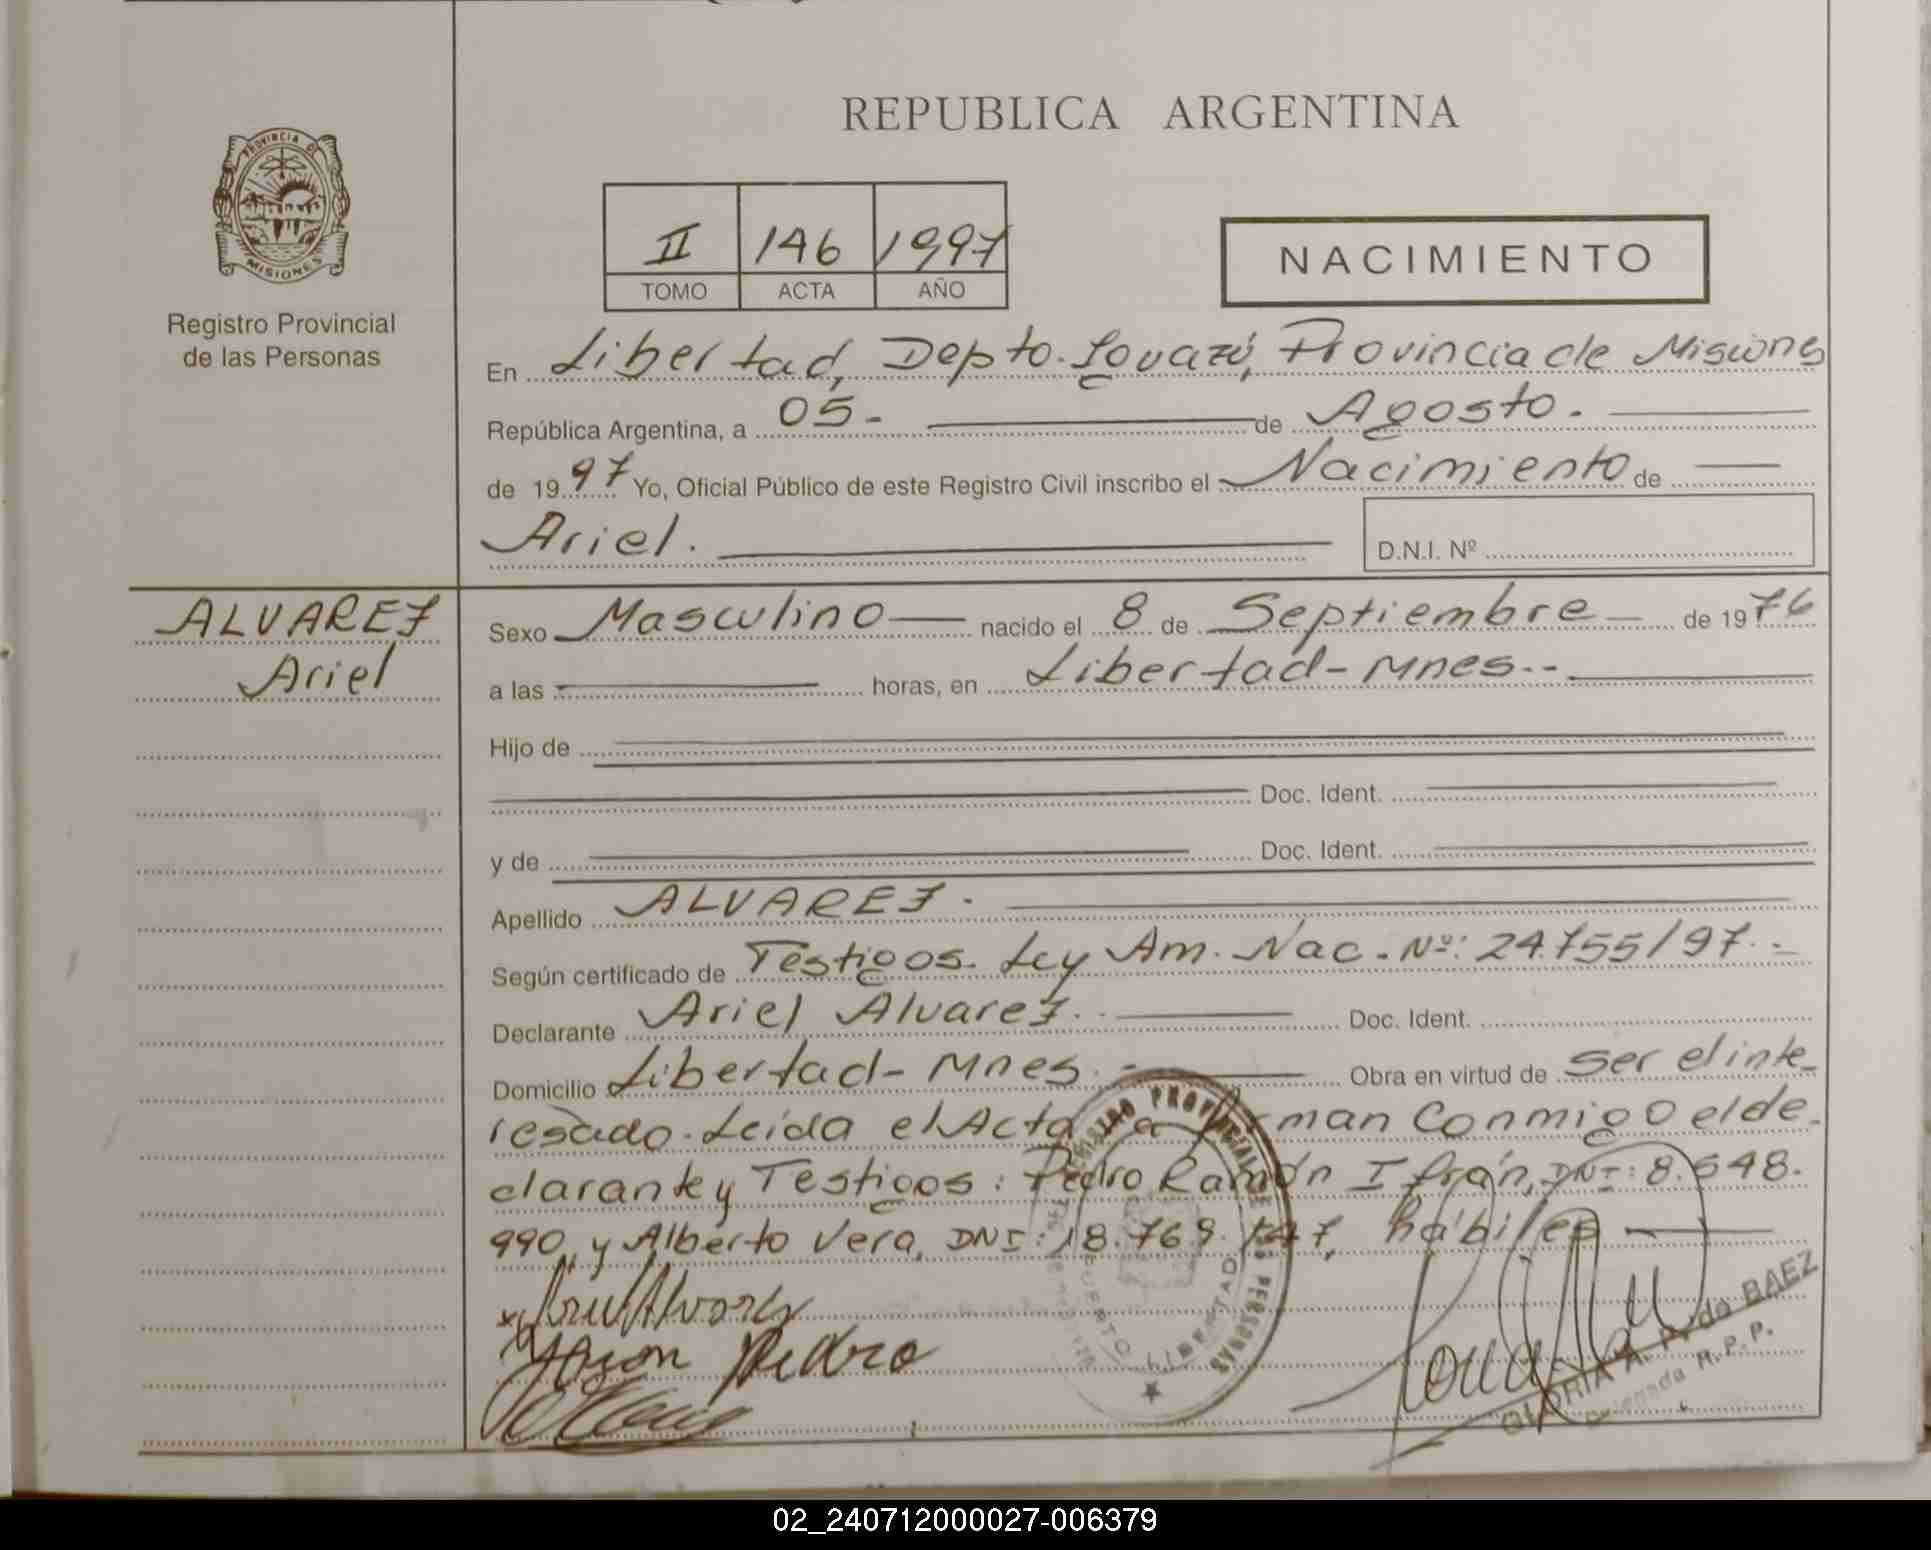 REPUBLICA ARGENTINA
PROVINCIA DE
MISIONES
Registro Provincial
de las Personas
II 146 1997
TOMO ACTA AÑO
NACIMIENTO
En Libertad, Depto. Iguazú, Provincia de Misiones
República Argentina, a 05- de Agosto.
de 1997 Yo, Oficial Público de este Registro Civil inscribo el Nacimiento de
Ariel.
D.N.I. Nº
ALVAREZ
Ariel
Sexo Masculino nacido el 8 de Septiembre de 1976
a las horas, en Libertad-Mnes.-
Hijo de
Doc. Ident.
y de Doc. Ident.
Apellido ALVAREZ.
Según certificado de Testigos. Ley Am. Nac. Nº: 24.755/97.-
Declarante Ariel Alvarez. Doc. Ident.
Domicilio Libertad-Mnes.- Obra en virtud de ser el inte-
resado. Leída el Acta la firman Conmigo el de-
clarante y Testigos: Pedro Ramón Ifrán, DNI: 8.548.
990, y Alberto Vera, DNI: 18.769.147, hábiles
REGISTRO PROVINCIAL DE LAS PERSONAS
PUERTO LIBERTAD
Pedro
GLORIA A. P. de BAEZ
Delegada R. P. P.
02_240712000027-006379